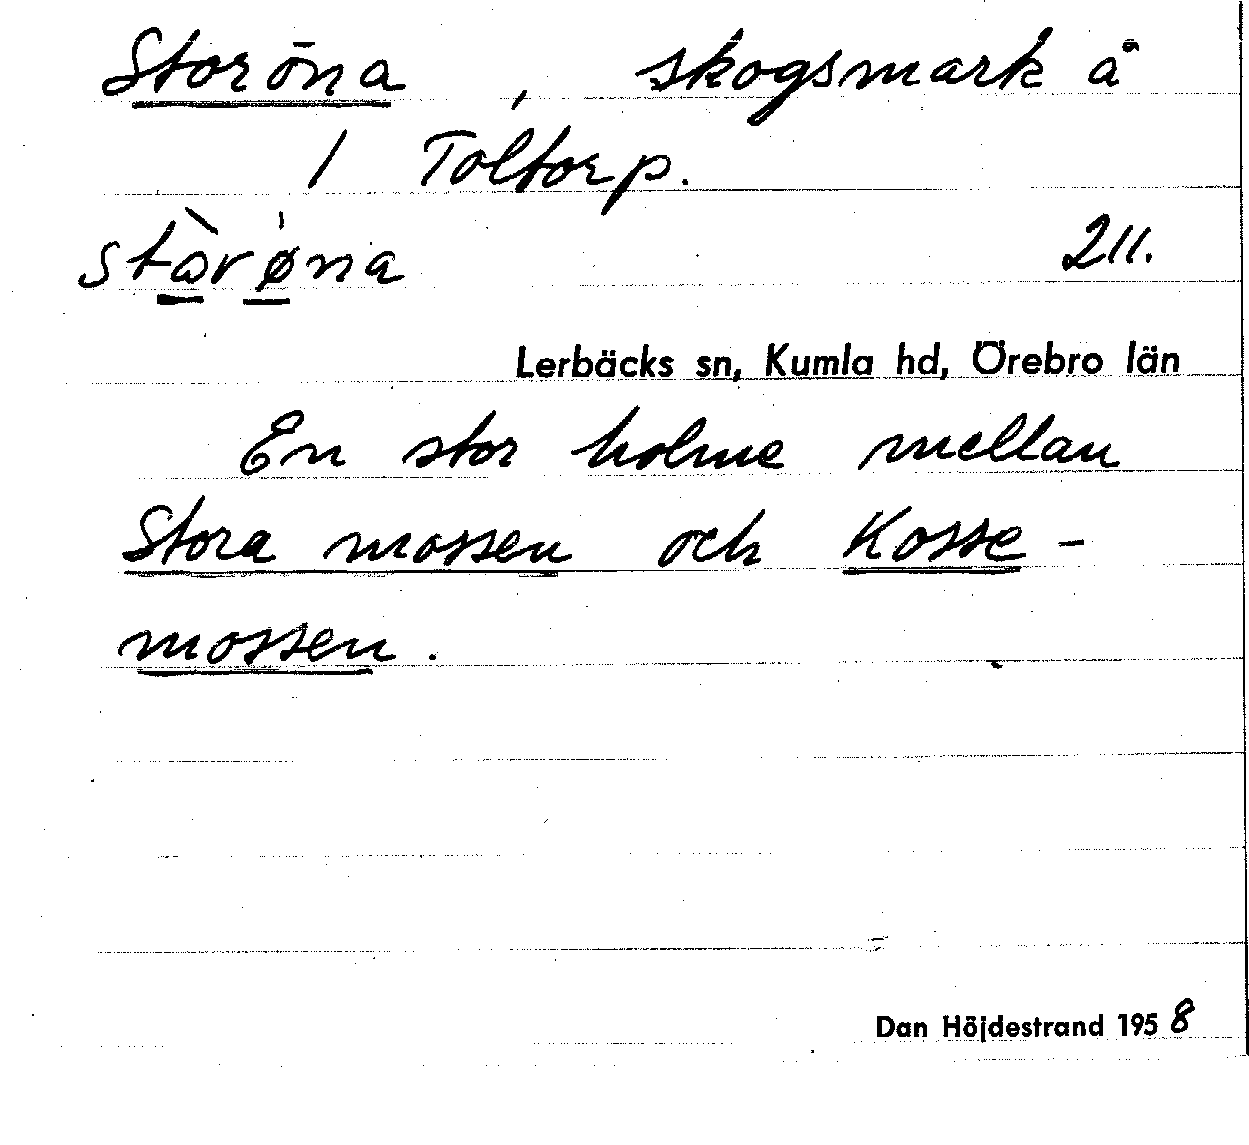 Storöna, skogsmark å
1 Toltorp.
stòrǿna 211.
Lerbäcks sn, Kumla hd, Örebro län
En stor holme mellan
Stora mossen och Kosse-
mossen.
Dan Höjdestrand 1958